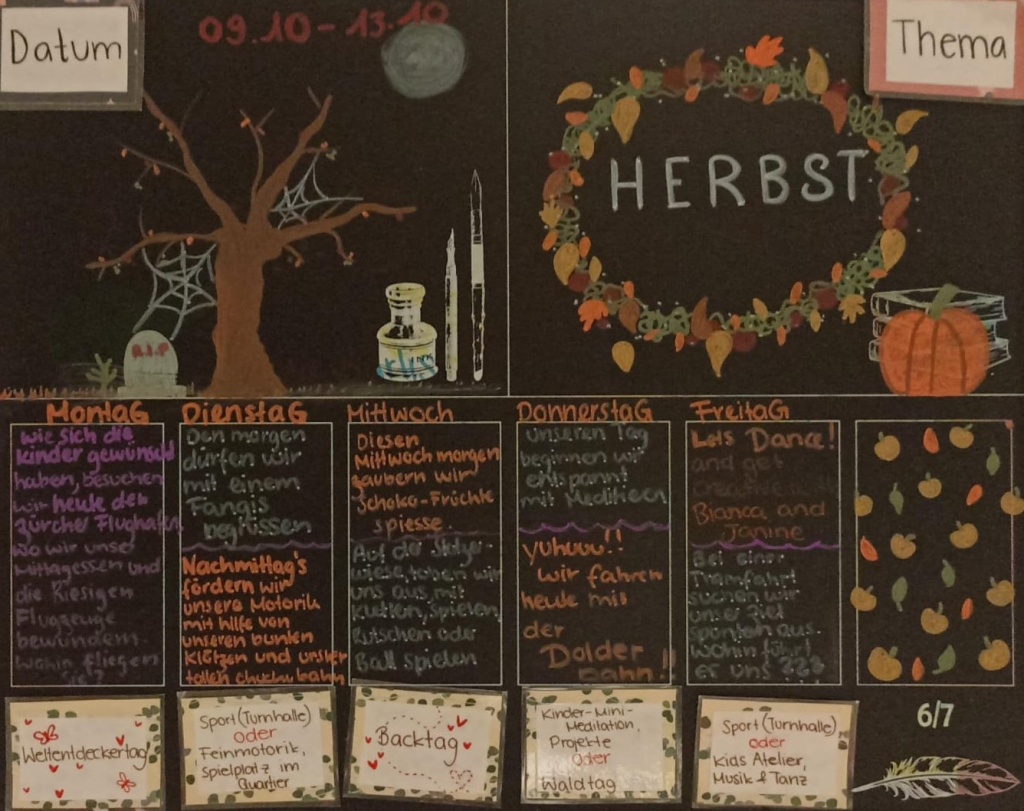 Datum
09.10-13.10
Thema
HERBST
R.I.P
MontaG
wie sich die
kinder gewünscht
haben, besuchen
wir heute den
Zürcher Flughafen
wo wir unser
Mittagessen und
die Riesigen
Flugzeuge
bewundern.
Wohin fliegen
sie?
DienstaG
Den morgen
dürfen wir
mit einem
Fangis
begrüssen
Nachmittag's
fördern wir
unsere Motorik
mit hilfe von
unseren bunten
Klötzen und unsrer
tollen chuchubahn
Mittwoch
Diesen
Mittwoch morgen
zaubern wir
Schoko-Früchte
spiesse.
Auf der
wiese, toben wir
uns aus, mit
klettern, spielen,
Rutschen oder
Ball spielen
DonnerstaG
unseren Tag
beginnen wir
entspannt
mit Meditieren
yuhuuu!!
wir fahren
heute mit
der
Dolder
bahn!!
FreitaG
Lets Dance!
and get
creative with
Bianca and
Janine
Bei einer
Tramfahrt
suchen wir
unser Ziel
spontan aus.
Wohin führt
es uns ???
Weltentdeckertag
Sport (Turnhalle)
oder
Feinmotorik,
Spielplatz im
Quartier
Backtag
Kinder-Mini-
Meditation,
Projekte
Oder
Waldtag
Sport (Turnhalle)
oder
Kids Atelier,
Musik & Tanz
6/7